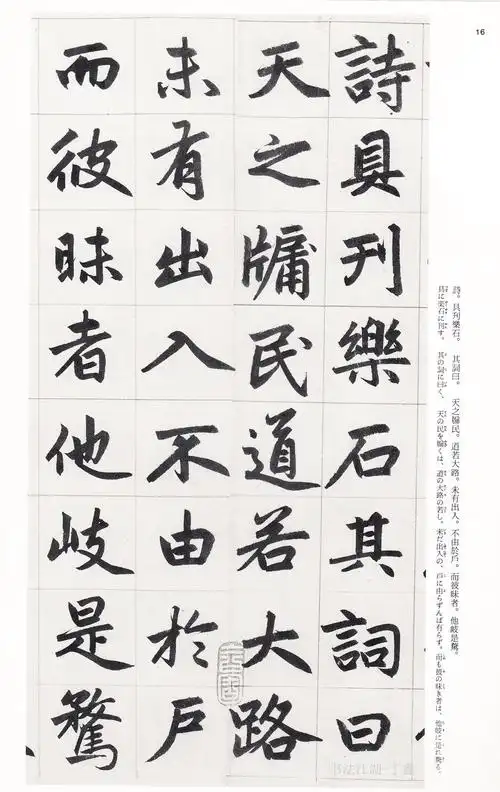 16
詩具刊樂石其詞曰
天之牖民道若大路
未有出入不由於戶
而彼昧者他岐是騖
詩。具刊樂石。其詞曰。天之牖民。道若大路。未有出入。不由於戶。而彼昧者。他岐是騖。
具に楽石に刊す。其の詞に曰く、天の民を牖くは、道の大路の若し。未だ出入の、戶に由らずんば有らず。而も彼の昧き者は、他岐に是れ騖る。